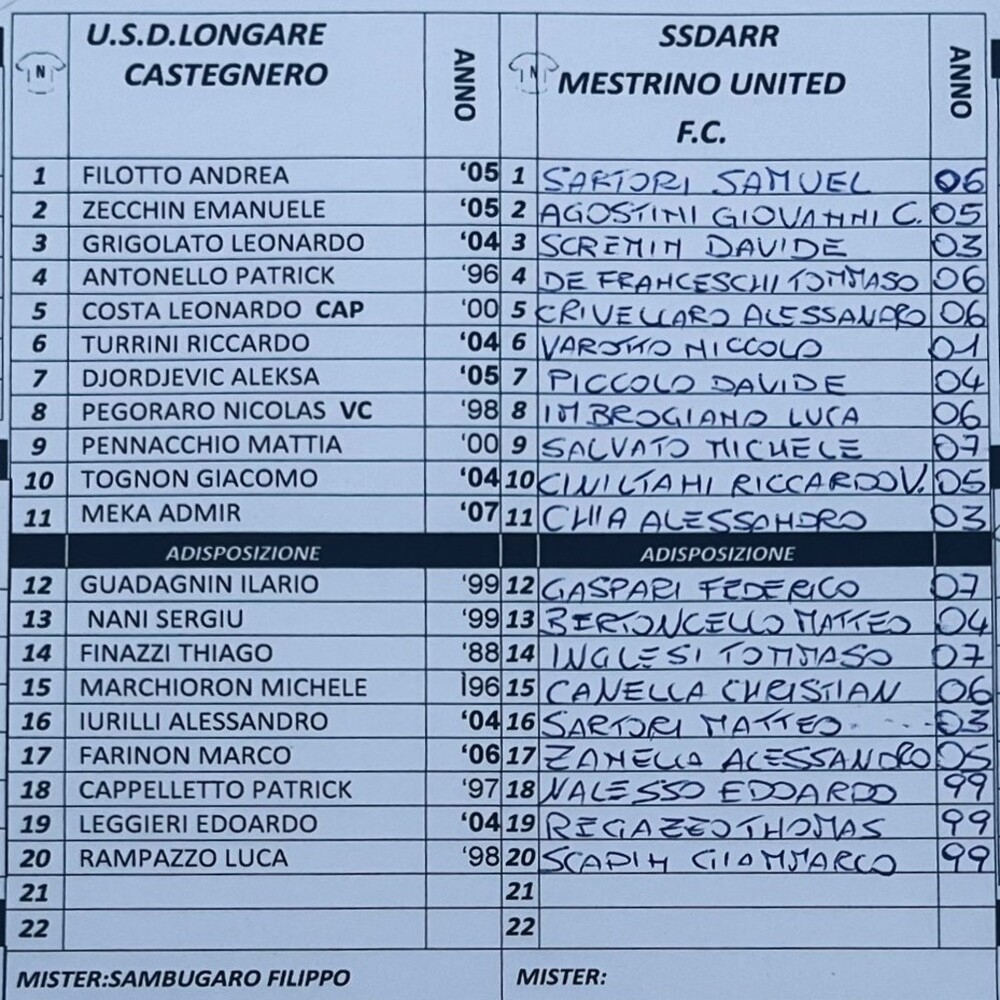 N U.S.D.LONGARE CASTEGNERO ANNO N SSDARR MESTRINO UNITED F.C. ANNO
1 FILOTTO ANDREA '05 1 SARTORI SAMUEL 06
2 ZECCHIN EMANUELE '05 2 AGOSTINI GIOVANNI C. 05
3 GRIGOLATO LEONARDO '04 3 SCREMIN DAVIDE 03
4 ANTONELLO PATRICK '96 4 DE FRANCESCHI TOMMASO 06
5 COSTA LEONARDO CAP '00 5 CRIVELLARO ALESSANDRO 06
6 TURRINI RICCARDO '04 6 VAROTTO NICCOLO 01
7 DJORDJEVIC ALEKSA '05 7 PICCOLO DAVIDE 04
8 PEGORARO NICOLAS VC '98 8 IMBROGIANO LUCA 06
9 PENNACCHIO MATTIA '00 9 SALVATO MICHELE 07
10 TOGNON GIACOMO '04 10 RICCARDO V. 05
11 MEKA ADMIR '07 11 CHIA ALESSANDRO 03
ADISPOSIZIONE ADISPOSIZIONE
12 GUADAGNIN ILARIO '99 12 GASPARI FEDERICO 07
13 NANI SERGIU '99 13 BERTONCELLO MATTEO 04
14 FINAZZI THIAGO '88 14 INGLESI TOMMASO 07
15 MARCHIORON MICHELE ì96 15 CANELLA CHRISTIAN 06
16 IURILLI ALESSANDRO '04 16 SARTORI MATTEO 03
17 FARINON MARCO '06 17 ZANELLA ALESSANDRO 05
18 CAPPELLETTO PATRICK '97 18 NALESSO EDOARDO 99
19 LEGGIERI EDOARDO '04 19 REGAZZO THOMAS 99
20 RAMPAZZO LUCA '98 20 SCAPIN GIAMMARCO 99
21 21
22 22
MISTER:SAMBUGARO FILIPPO MISTER: